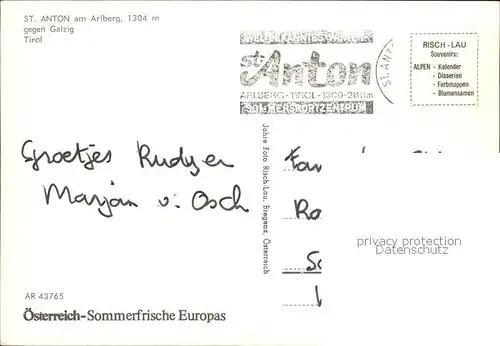 ST. ANTON am Arlberg, 1304 m
gegen Galzig
Tirol
WELTBEKANNTES WINTER-
st. Anton
ARLBERG-TIROL-1300-2811m
SOMMERSPORTZENTRUM
ST. ANT
RISCH-LAU
Souvenirs:
ALPEN - Kalender
- Diaserien
- Farbmappen
- Blumensamen
Groetjes Rudger
Marjan v. Osch
Fa
Ra
S
Jahre Foto Risch-Lau, Bregenz, Österreich
privacy protection
Datenschutz
AR 43765
Österreich-Sommerfrische Europas